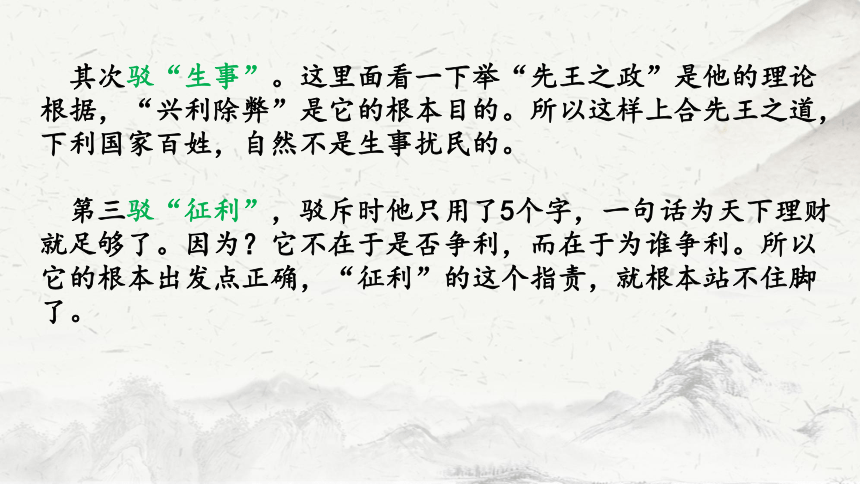 其次驳“生事”。这里面看一下举“先王之政”是他的理论
根据，“兴利除弊”是它的根本目的。所以这样上合先王之道，
下利国家百姓，自然不是生事扰民的。
第三驳“征利”，驳斥时他只用了5个字，一句话为天下理财
就足够了。因为？它不在于是否争利，而在于为谁争利。所以
它的根本出发点正确，“征利”的这个指责，就根本站不住脚
了。